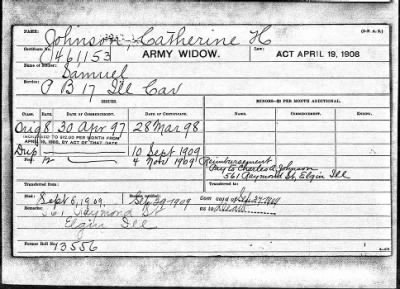 NAME: Johnson, Catherine H
Certificate No. 461153 ARMY WIDOW. Law: ACT APRIL 19, 1908
Name of Soldier: Samuel
Service: B 17 Ill Cav
ISSUES MINORS—$2 PER MONTH ADDITIONAL.
CLASS. RATE. DATE OF COMMENCEMENT. DATE OF CERTIFICATE. NAME. COMMENCEMENT. ENDING.
Orig 8 30 Apr 97 28 Mar 98
INCREASED TO $12.00 PER MONTH FROM
APRIL 19, 1908, BY ACT OF THAT DATE
Dup 10 Sept 1909
12 4 Nov 1909 Reimbursement
Pay to Charles A. Johnson
561 Raymond St, Elgin Ill
Transferred from: Transferred to:
Died: Sept 6, 1909.
Remarks:
561 Raymond St
Elgin Ill
Former Roll No. 13556